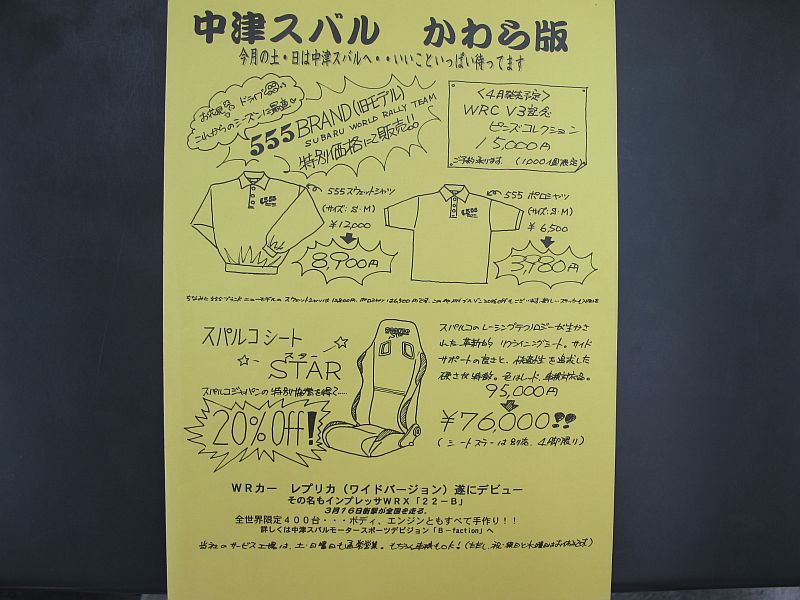 中津スバル かわら版
今月の土・日は中津スバルへ・・いいこといっぱい待ってます
お花見 ドライブ
これからのシーズンに最適
555 BRAND(旧モデル)
SUBARU WORLD RALLY TEAM
特別価格にて販売!!
<4月発売予定>
WRC V3記念
ピンズコレクション
15,000円
ご予約承ります (1000個限定)
555スウェットシャツ
(サイズ:S・M)
¥12,000
8,900円
555 ポロシャツ
(サイズ:S・M)
¥6,500
3,980円
ちなみに555ブランド ニューモデルの スウェットシャツは12,800円、ポロシャツは6,900円です。
スパルコシート
スター
STAR
スパルコジャパンの特別協賛を得て.....
20%Off!
スパルコのレーシングテクノロジーが生かさ
れた革新的 リクライニングシート。サイド
サポートの良さと、快適性を追求した
硬さが特徴。色はレッド、車検対応品。
95,000円
¥76,000!!
(シートステーは別売、4脚限り)
WRカー レプリカ(ワイドバージョン)遂にデビュー
その名もインプレッサWRX「22-B」
3月16日衝撃が全国を走る。
全世界限定400台・・・ボディ、エンジンともすべて手作り!!
詳しくは中津スバルモータースポーツデビジョン「B-faction」へ
当社のサービス工場は、土・日曜日も通常営業。もちろん車検もOK!(ただし、祝・祭日と水曜日はお休みです)